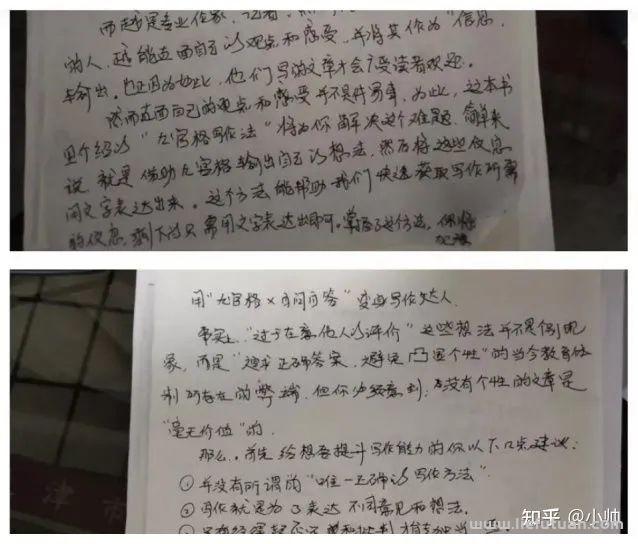 而越是专业作家、记者、
的人，越能直面自己的观点和感受，并将其作为“信息
输出。也正因为如此，他们写的文章才会广受读者欢迎。
然而直面自己的观点和感受并不是件易事，为此，这本书
“九宫格写作法”将为你解决这个难题。简单来
说，就是借助九宫格输出自己的想法，然后将这些信息
用文字表达出来。这个方法能帮助我们快速获取写作所需
的信息，剩下的只需用文字表达出即可。掌握了这个方法，你将
用“九宫格×自问自答”变身写作达人
事实上，“过于在意他人的评价”这些想法并不是个别现
象，而是“追求正确答案，避免凸显个性”的当今教育体
制所存在的弊端，但你必须意识到：没有个性的文章是
“毫无价值”的。
那么，首先给想要提升写作能力的你以下几点建议：
①并没有所谓的“唯一正确的写作方法”
②写作就是为了表达不同意见和想法。
知乎 @小帅